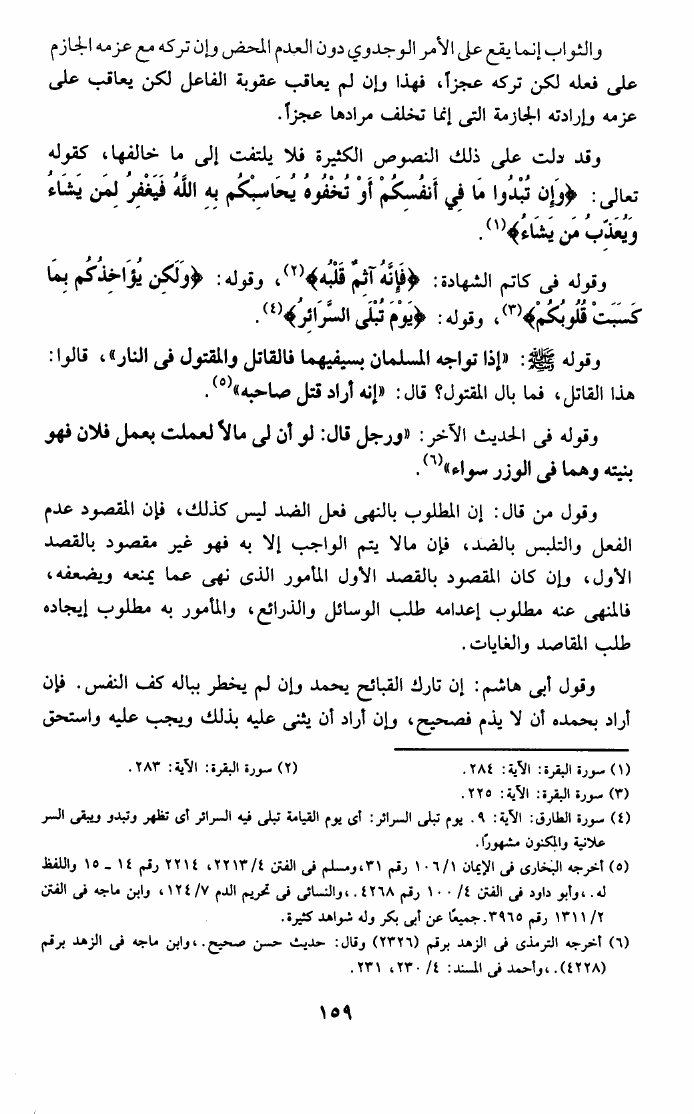 والثواب إنما يقع على الأمر الوجدوي دون العدم المحض وإن تركه مع عزمه الجازم
على فعله لكن تركه عجزاً، فهذا وإن لم يعاقب عقوبة الفاعل لكن يعاقب على
عزمه وإرادته الجازمة التى إنما تخلف مرادها عجزاً.
وقد دلت على ذلك النصوص الكثيرة فلا يلتفت إلى ما خالفها، كقوله
تعالى: ﴿وَإِن تُبْدُوا مَا فِي أَنفُسِكُمْ أَوْ تُخْفُوهُ يُحَاسِبْكُم بِهِ اللَّهُ فَيَغْفِرُ لِمَن يَشَاءُ
وَيُعَذِّبُ مَن يَشَاءُ﴾(١).
وقوله فى كاتم الشهادة: ﴿فَإِنَّهُ آثِمٌ قَلْبُه﴾(٢)، وقوله: ﴿وَلَكِن يُؤَاخِذُكُم بِمَا
كَسَبَتْ قُلُوبُكُمْ﴾(٣)، وقوله: ﴿يَوْمَ تُبْلَى السَّرَائِرُ﴾(٤).
وقوله ﷺ: «إذا تواجه المسلمان بسيفيهما فالقاتل والمقتول فى النار»، قالوا:
هذا القاتل، فما بال المقتول؟ قال: «إنه أراد قتل صاحبه»(٥).
وقوله فى الحديث الآخر: «ورجل قال: لو أن لى مالاً لعملت بعمل فلان فهو
بنيته وهما فى الوزر سواء»(٦).
وقول من قال: إن المطلوب بالنهى فعل الضد ليس كذلك، فإن المقصود عدم
الفعل والتلبس بالضد، فإن مالا يتم الواجب إلا به فهو غير مقصود بالقصد
الأول، وإن كان المقصود بالقصد الأول المأمور الذى نهى عما يمنعه ويضعفه،
فالمنهى عنه مطلوب إعدامه طلب الوسائل والذرائع، والمأمور به مطلوب إيجاده
طلب المقاصد والغايات.
وقول أبى هاشم: إن تارك القبائح يحمد وإن لم يخطر بباله كف النفس. فإن
أراد بحمده أن لا يذم فصحيح، وإن أراد أن يثنى عليه بذلك ويجب عليه واستحق
(١) سورة البقرة: الآية: ٢٨٤. (٢) سورة البقرة: الآية: ٢٨٣.
(٣) سورة البقرة: الآية: ٢٢٥.
(٤) سورة الطارق: الآية: ٩. يوم تبلى السرائر: أى يوم القيامة تبلى فيه السرائر أى تظهر وتبدو ويبقى السر
علانية والمكنون مشهوراً.
(٥) أخرجه البخارى فى الإيمان ١٠٦/١ رقم ٣١، ومسلم فى الفتن ٢٢١٣/٤، ٢٢١٤ رقم ١٤ ــ ١٥ واللفظ
له.، وأبو داود فى الفتن ١٠٠/٤ رقم ٤٢٦٨.، والنسائى فى تحريم الدم ١٢٤/٧، وابن ماجه فى الفتن
١٣١١/٢ رقم ٣٩٦٥. جميعًا عن أبى بكر وله شواهد كثيرة.
(٦) أخرجه الترمذى فى الزهد برقم (٢٣٢٦) وقال: حديث حسن صحيح.، وابن ماجه فى الزهد برقم
(٤٢٢٨).، وأحمد فى المسند: ٢٣٠/٤، ٢٣١.
١٥٩